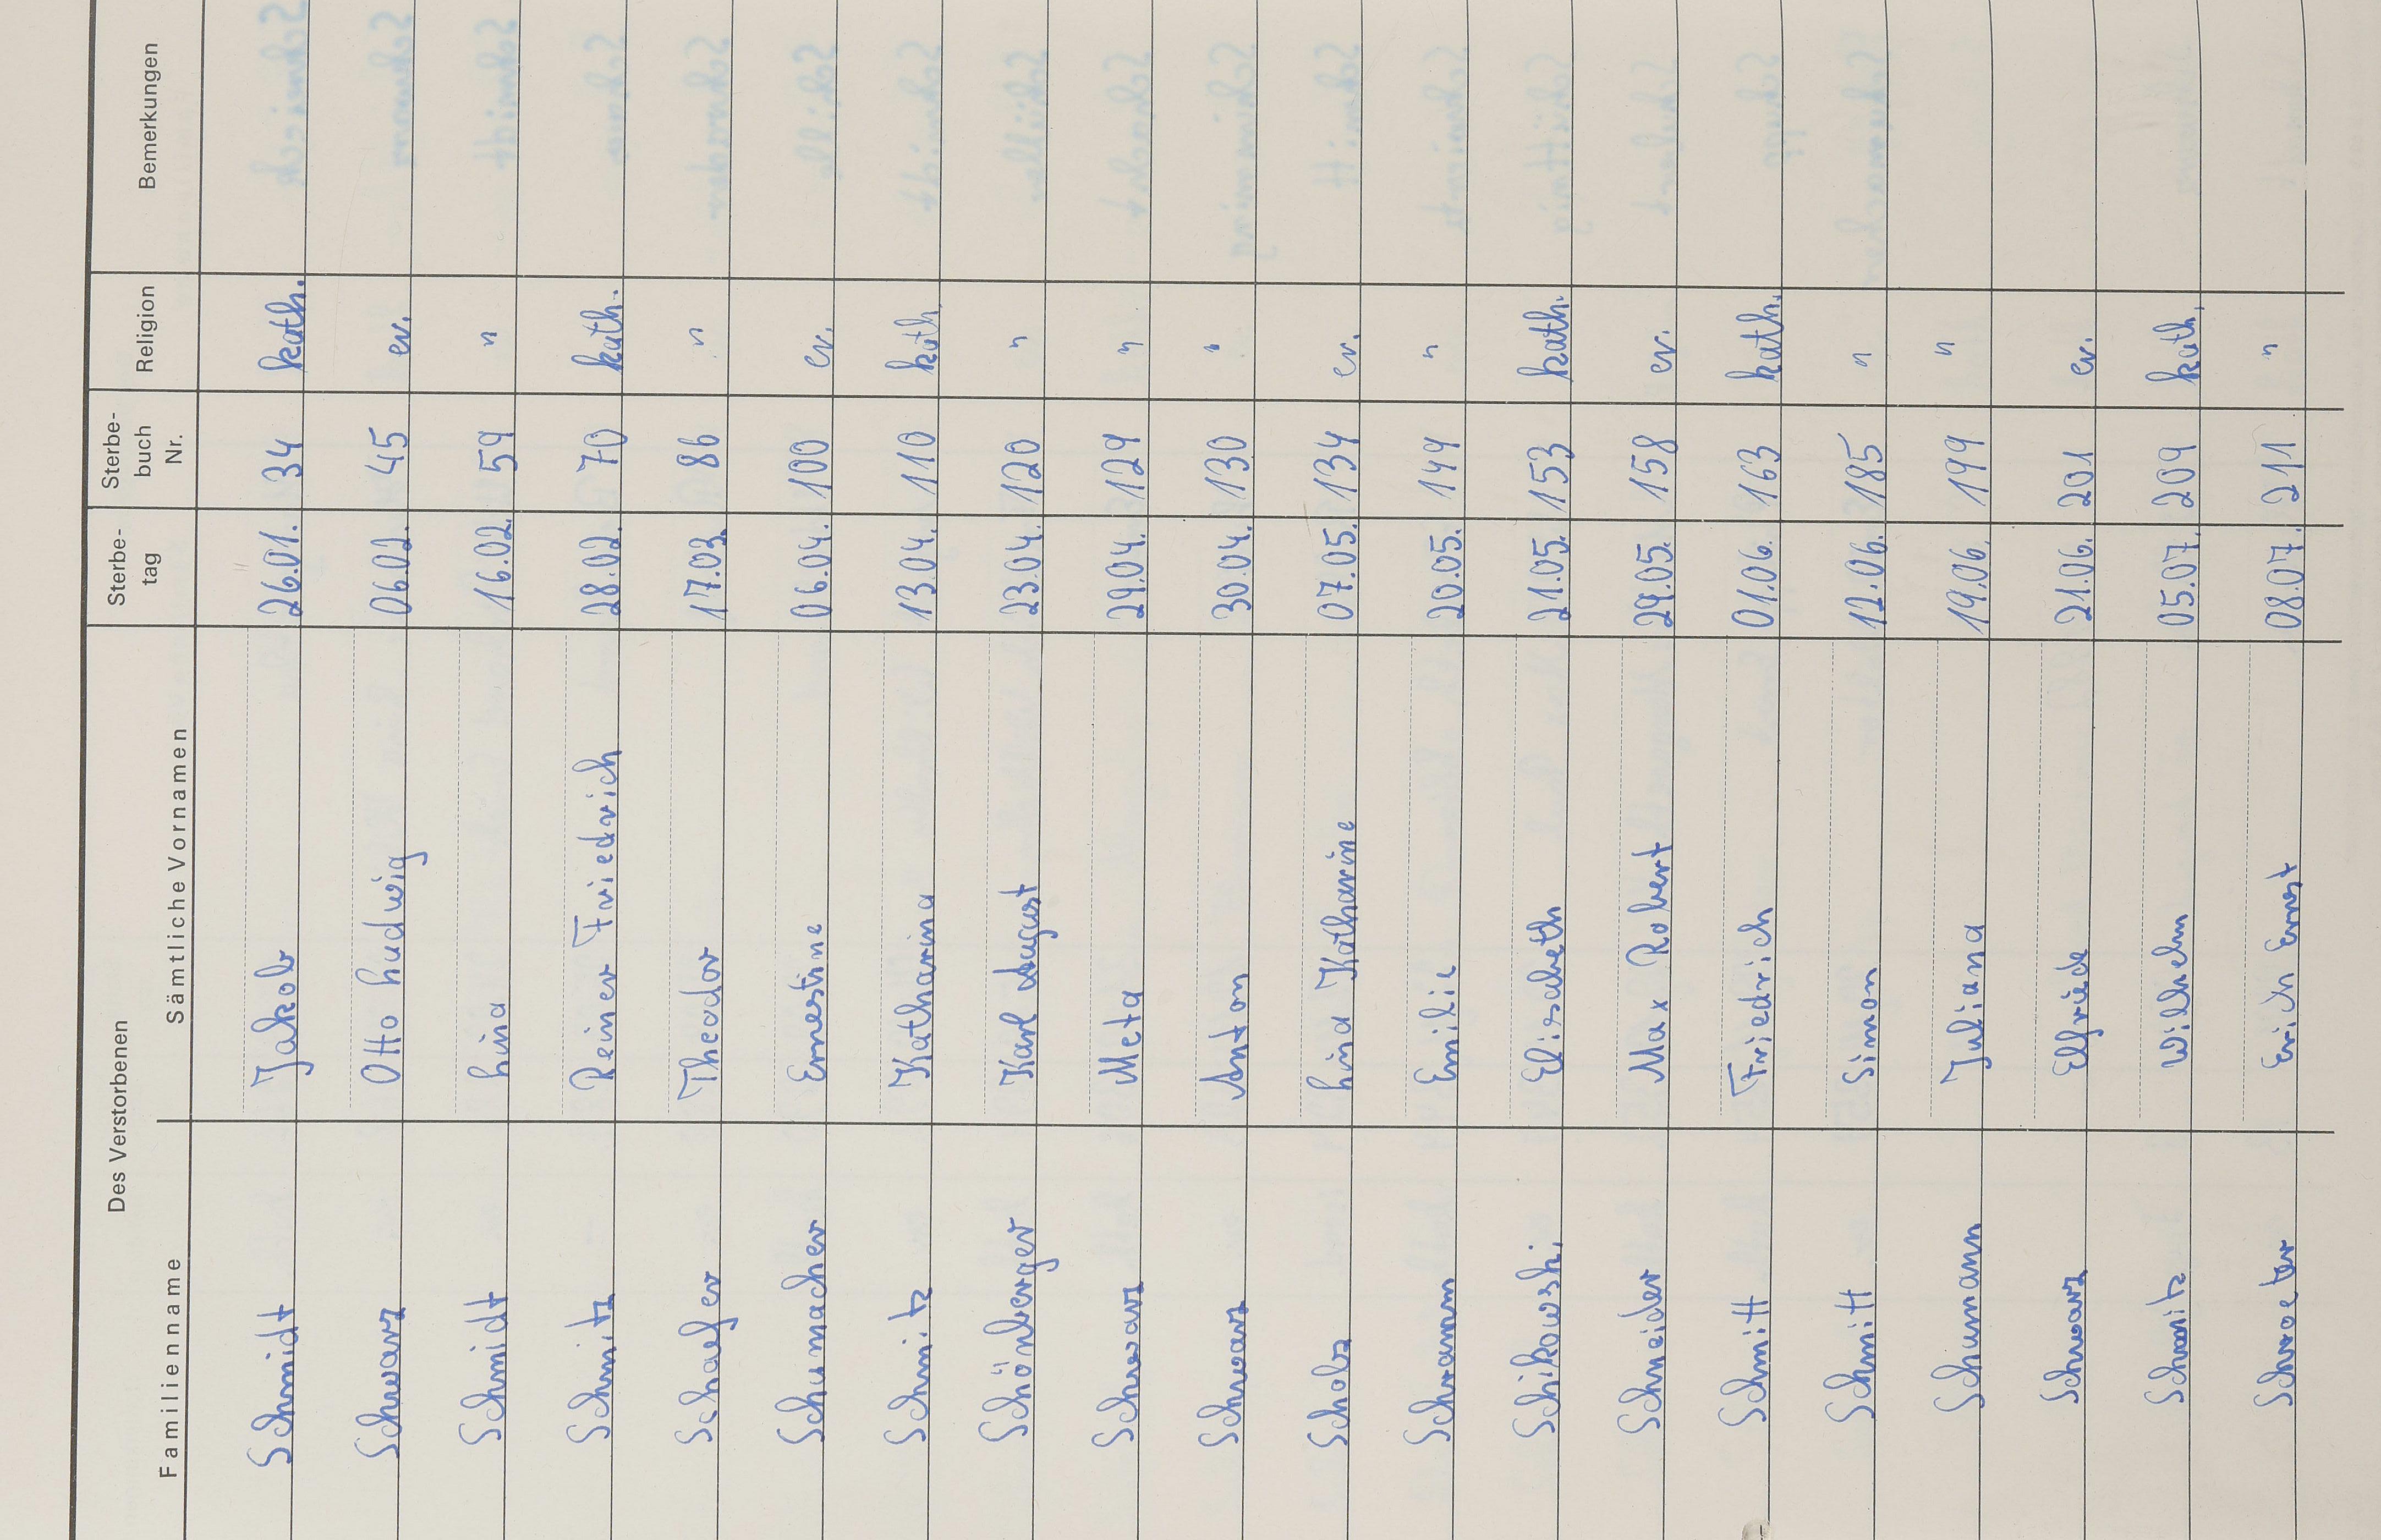 Des Verstorbenen Sterbe- Sterbe- Religion Bemerkungen
Familienname Sämtliche Vornamen tag buch Nr.
Schmidt Jakob 26.01. 34 kath.
Schwarz Otto Ludwig 06.02. 45 ev.
Schmidt Lina 16.02. 59 "
Schmitz Reiner Friedrich 28.02. 70 kath.
Schaefer Theodor 17.03. 86 "
Schumacher Ernestine 06.04. 100 ev.
Schmitz Katharina 13.04. 110 kath.
Schönberger Karl August 23.04. 120 "
Schwarz Meta 29.04. 129 "
Schwarz Anton 30.04. 130 "
Scholz Lina Katharine 07.05. 134 ev.
Schramm Emilie 20.05. 149 "
Schikowski Elisabeth 21.05. 153 kath.
Schneider Max Robert 29.05. 158 ev.
Schmitt Friedrich 01.06. 163 kath.
Schmitt Simon 12.06. 185 "
Schumann Juliana 19.06. 199 "
Schwarz Elfriede 21.06. 201 ev.
Schmitz Wilhelm 05.07. 209 kath.
Schroeter Erich Ernst 08.07. 211 "